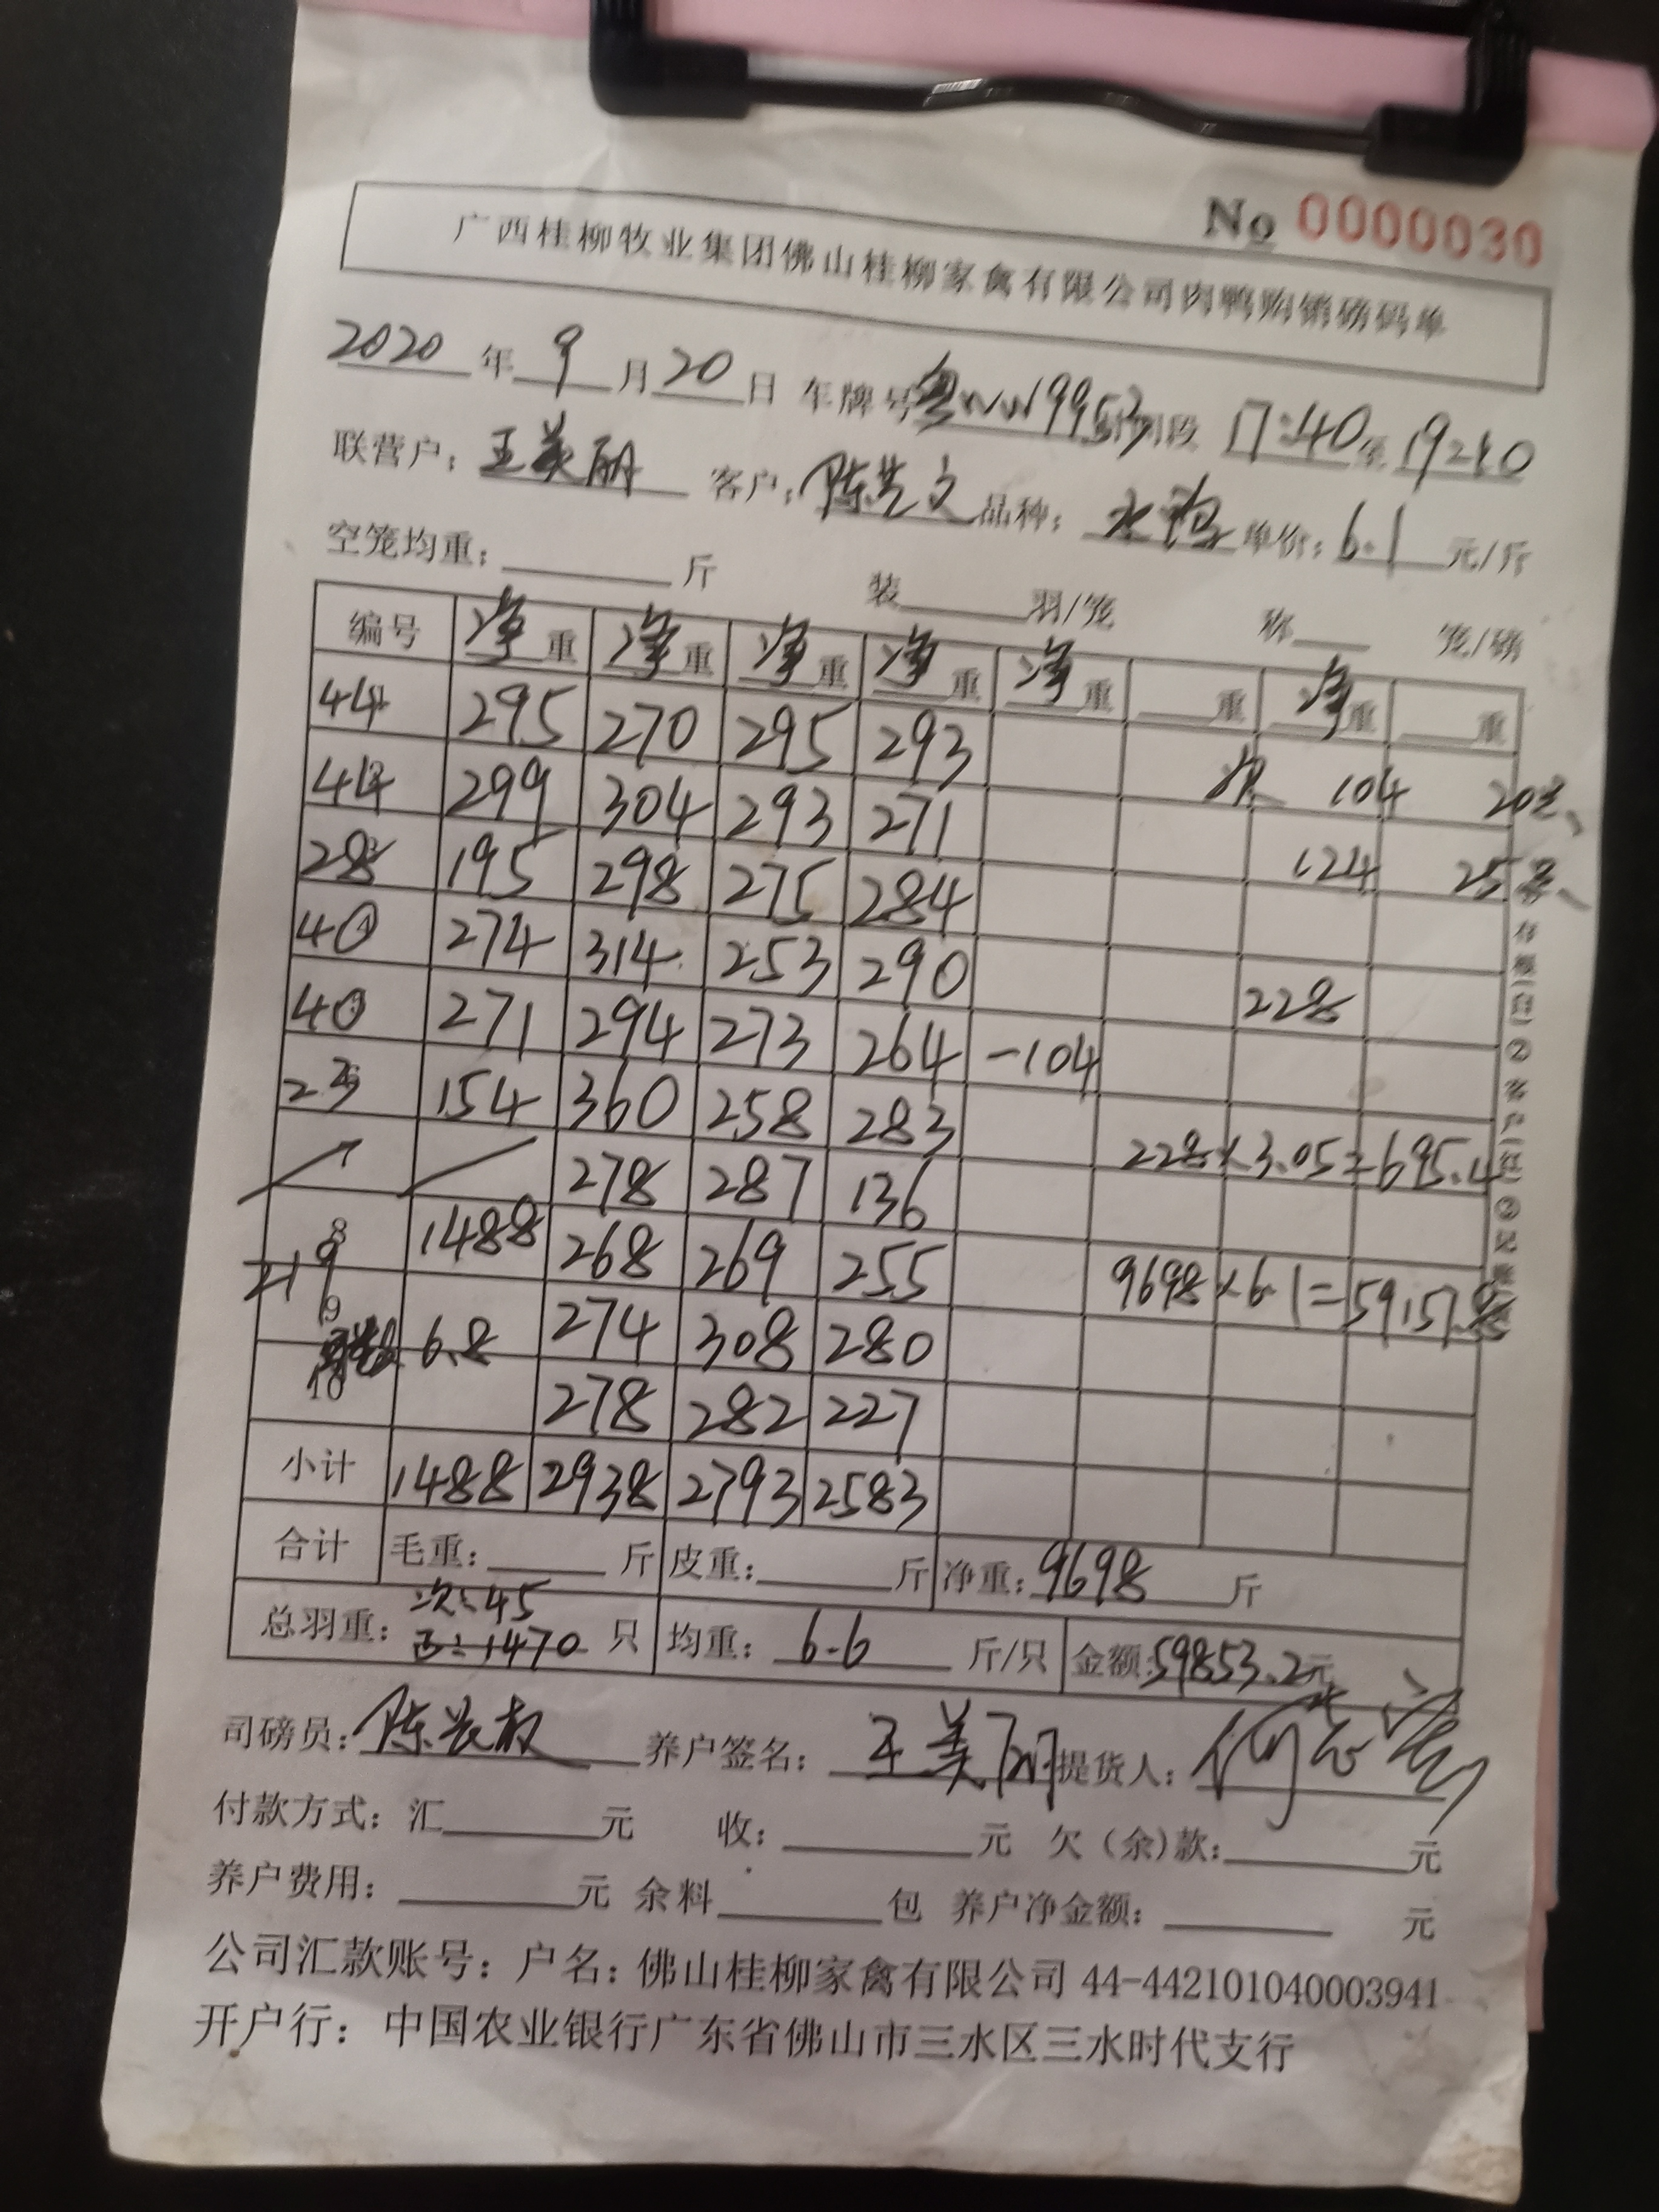 No 0000030
广西桂柳牧业集团佛山桂柳家禽有限公司肉鸭购销磅码单
2020 年 9 月 20 日 车牌号 粤WW1995 时间段 17:40 至 19:10
联营户: 王美丽 客户: 陈 文 品种: 水鸭 单价: 6.1 元/斤
空笼均重: 斤 装 羽/笼 称 笼/磅
编号 净重 净重 净重 净重 净重 重 净重 重
44 295 270 295 293
44 299 304 293 271 次 104 20只
28 195 298 275 284 124 25只
40 274 314 253 290
40 271 294 273 264 -104 228
23 154 360 258 283
278 287 136 228×3.05=695.4
219 8 1488 268 269 255
9 6.8 274 308 280 9698×6.1=59157.8
10 278 282 227
小计 1488 2938 2793 2583
合计 毛重: 斤 皮重: 斤 净重: 9698 斤
次:45
总羽重: 正:1470 只 均重: 6.6 斤/只 金额: 59853.2元
司磅员: 陈 权 养户签名: 王美丽 提货人: 何
付款方式: 汇 元 收: 元 欠(余)款: 元
养户费用: 元 余料 包 养户净金额: 元
公司汇款账号: 户名: 佛山桂柳家禽有限公司 44-442101040003941
开户行: 中国农业银行广东省佛山市三水区三水时代支行